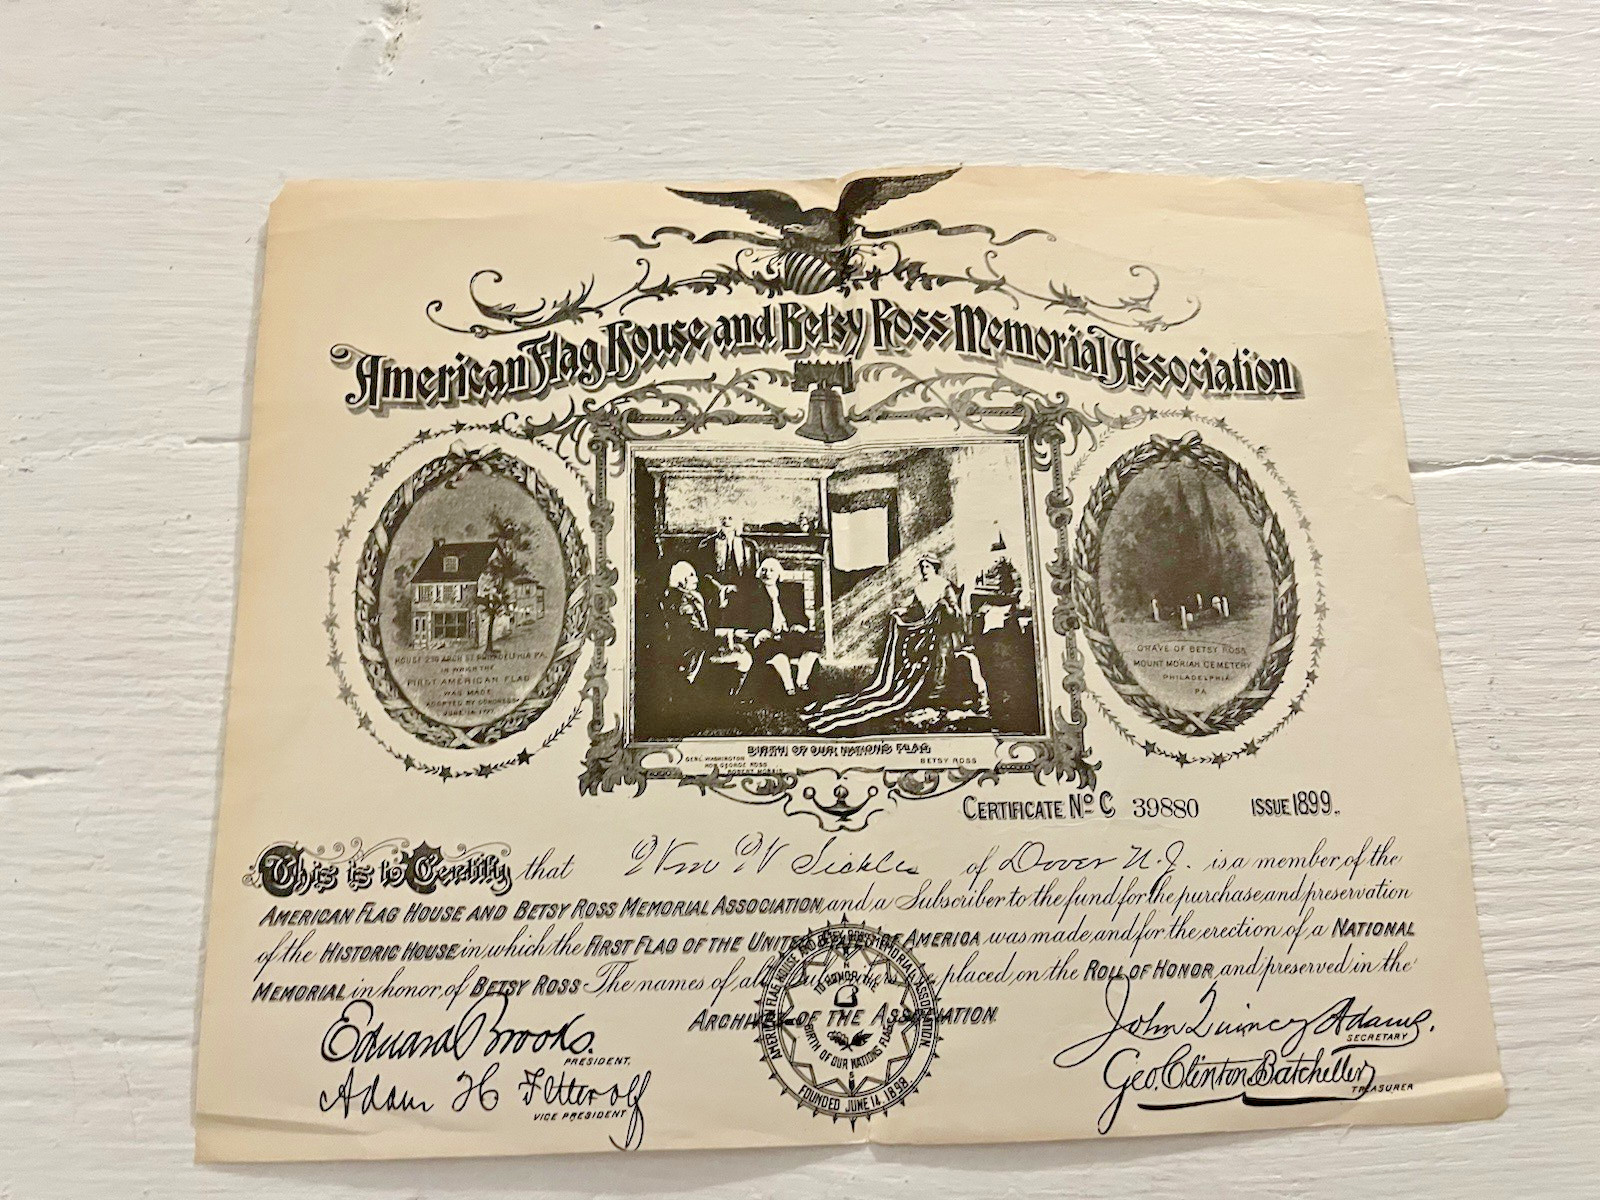 American Flag House and Betsy Ross Memorial Association
HOUSE 239 ARCH ST. PHILADELPHIA PA.
IN WHICH THE
FIRST AMERICAN FLAG
WAS MADE
ADOPTED BY CONGRESS
JUNE 14, 1777
GRAVE OF BETSY ROSS
MOUNT MORIAH CEMETERY
PHILADELPHIA
PA
BIRTH OF OUR NATION'S FLAG
GEN'L WASHINGTON
HON. GEORGE ROSS
ROBERT MORRIS
BETSY ROSS
CERTIFICATE No C 39880 ISSUE 1899.
This is to Certify that Wm W Sickles of Dover N.J. is a member of the
AMERICAN FLAG HOUSE AND BETSY ROSS MEMORIAL ASSOCIATION, and a Subscriber to the fund for the purchase and preservation
of the HISTORIC HOUSE in which the FIRST FLAG OF THE UNITED STATES OF AMERICA was made, and for the erection of a NATIONAL
MEMORIAL in honor of BETSY ROSS. The names of all Subscribers are placed on the ROLL OF HONOR, and preserved in the
ARCHIVES OF THE ASSOCIATION
AMERICAN FLAG HOUSE AND BETSY ROSS MEMORIAL ASSOCIATION
TO HONOR THE
BIRTH OF OUR NATIONS FLAG
FOUNDED JUNE 14, 1898
Edward Brooks.
PRESIDENT.
Adam H Fetterolf
VICE PRESIDENT
John Quincy Adams.
SECRETARY
Geo. Clinton Batcheller
TREASURER